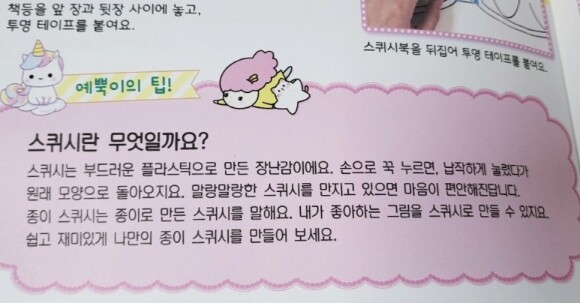 책등을 앞 장과 뒷장 사이에 놓고,
투명 테이프를 붙여요.
스퀴시북을 뒤집어 투명 테이프를 붙여요.
예뿍이의 팁!
스퀴시란 무엇일까요?
스퀴시는 부드러운 플라스틱으로 만든 장난감이에요. 손으로 꾹 누르면, 납작하게 눌렸다가
원래 모양으로 돌아오지요. 말랑말랑한 스퀴시를 만지고 있으면 마음이 편안해진답니다.
종이 스퀴시는 종이로 만든 스퀴시를 말해요. 내가 좋아하는 그림을 스퀴시로 만들 수 있지요.
쉽고 재미있게 나만의 종이 스퀴시를 만들어 보세요.